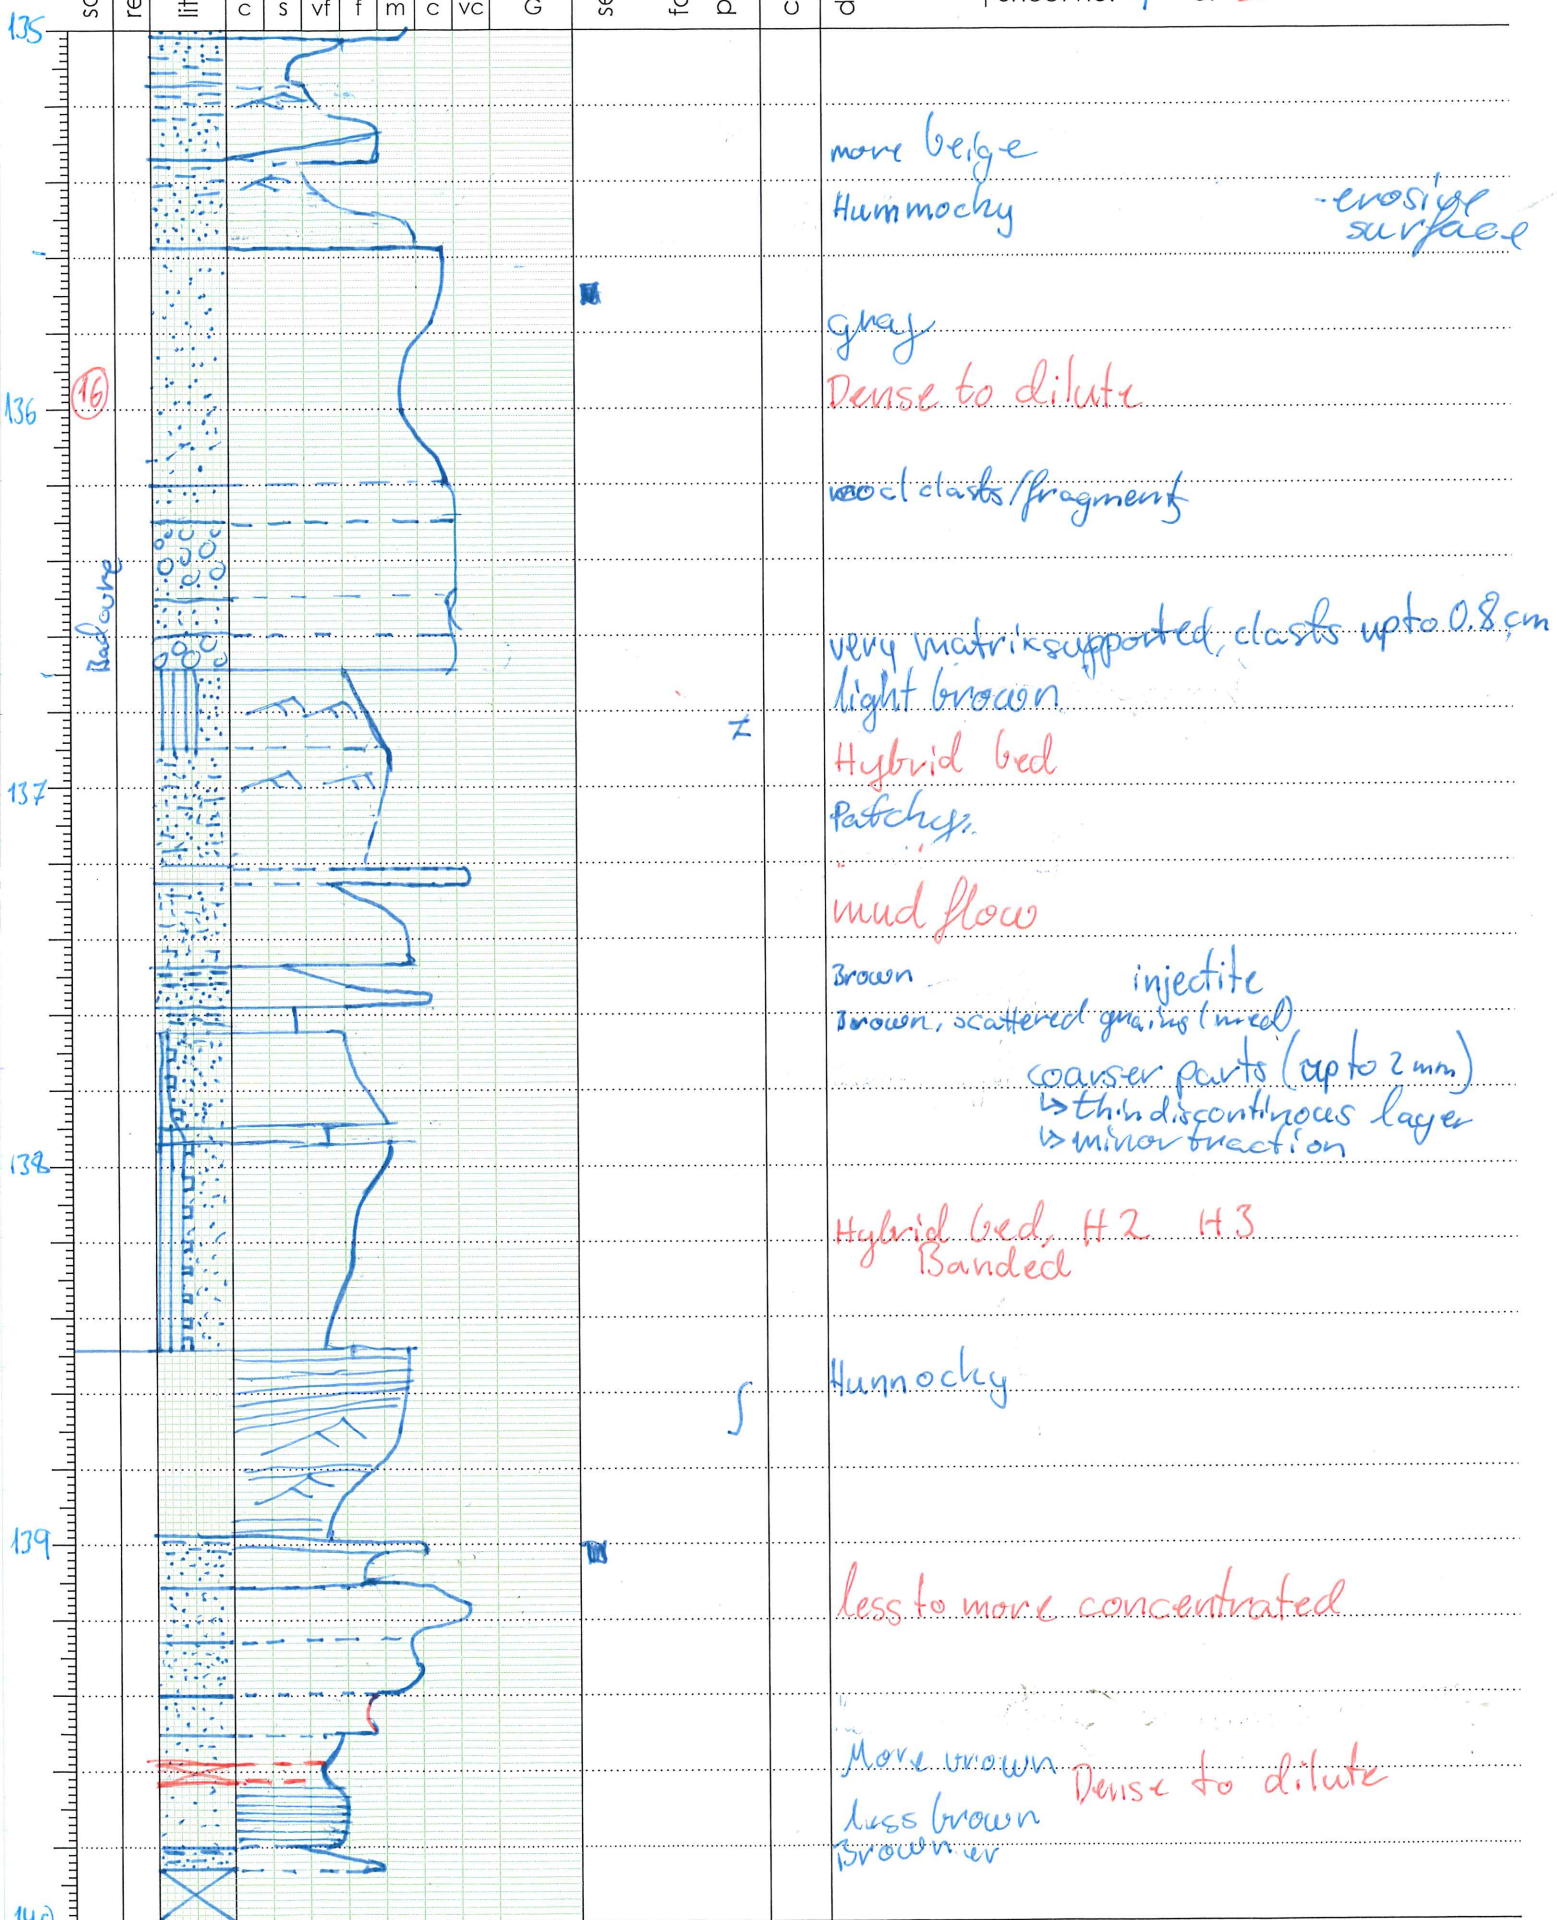 c s vf f m c vc G
135
more beige
Hummocky
-erosive
surface
gray
16
136
Dense to dilute
wood clasts/fragments
very matrix supported, clasts up to 0.8 cm
light brown
Hybrid bed
137
Patchy
mud flow
Brown
injectite
Brown, scattered grains (med)
coarser parts (up to 2 mm)
↳ thin discontinous layer
↳ minor traction
138
Hybrid bed, H2 H3
Banded
Hunnocky
139
less to more concentrated
More vrown
Dense to dilute
less brown
Browner
140